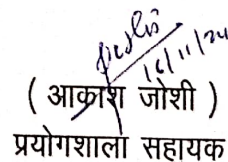 16/11/24
( आकाश जोशी )
प्रयोगशाला सहायक